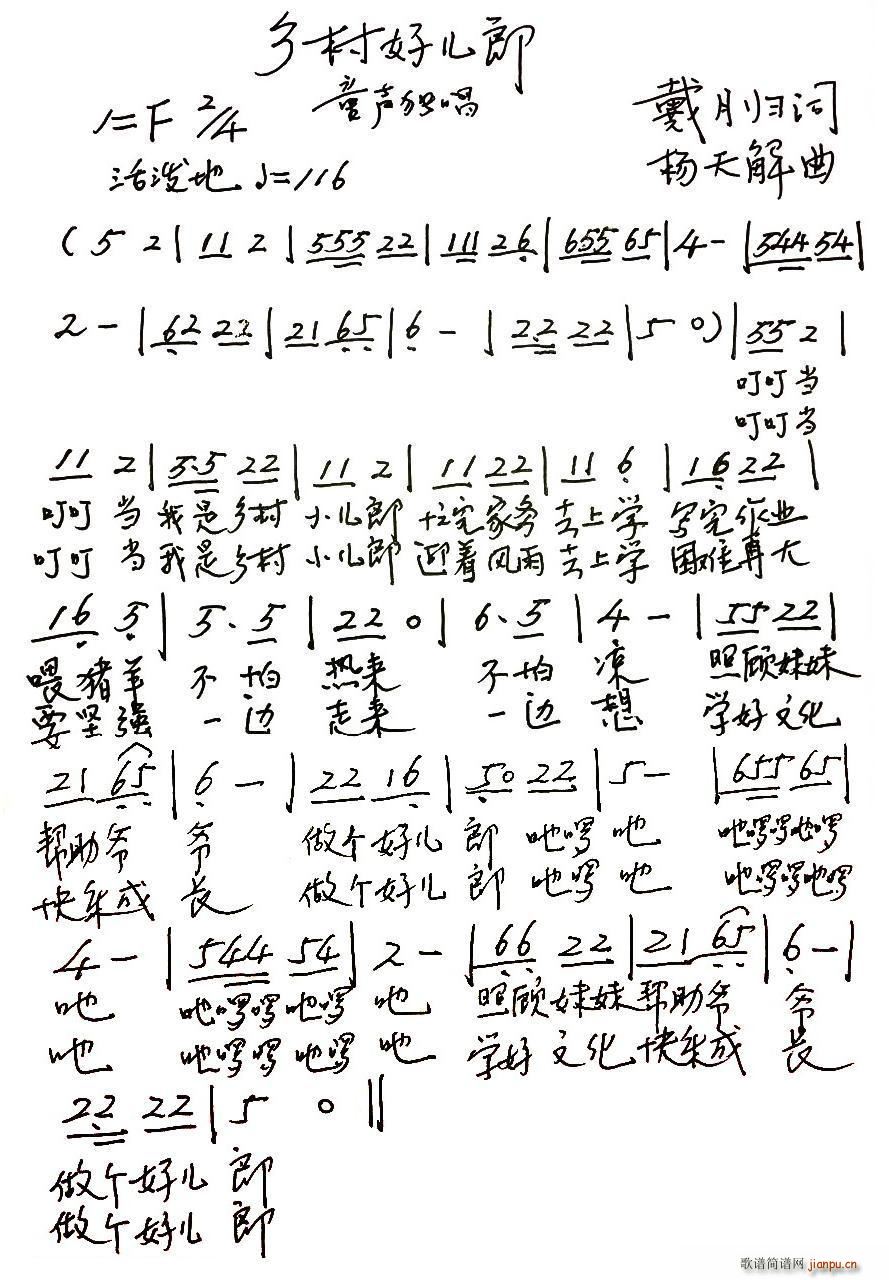 乡村好儿郎
1=F 2/4 童声独唱 戴月归词
活泼地 ♩=116 杨天解曲
( 5 2 | 11 2 | 555 22 | 111 26 | 655 65 | 4 - | 544 54 |
2 - | 62 22 | 21 65 | 6 - | 22 22 | 5 0 ) | 55 2 |
叮叮当
叮叮当
11 2 | 5·5 22 | 11 2 | 11 22 | 11 6 | 16 22 |
叮叮 当 我是乡村 小儿郎 忙完家务 去上学 写完作业
叮叮 当 我是乡村 小儿郎 迎着风雨 去上学 困难再大
16 5 | 5· 5 | 22 0 | 6· 5 | 4 - | 55 22 |
喂猪羊 不 怕 热来 不 怕 凉 照顾妹妹
要坚强 一 边 走来 一 边 想 学好文化
21 65 | 6 - | 22 16 | 50 22 | 5 - | 655 65 |
帮助爷 爷 做个好儿 郎 吔啰 吔 吔啰啰吔啰
快乐成 长 做个好儿 郎 吔啰 吔 吔啰啰吔啰
4 - | 544 54 | 2 - | 66 22 | 21 65 | 6 - |
吔 吔啰啰吔啰 吔 照顾妹妹 帮助爷 爷
吔 吔啰啰吔啰 吔 学好文化 快乐成 长
22 22 | 5 0 ‖
做个好儿 郎
做个好儿 郎
歌谱简谱网
jianpu.cn